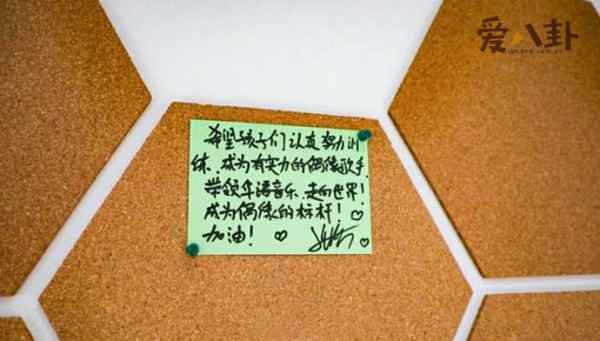 爱八卦
希望孩子们认真努力训
练、成为有实力的偶像歌手、
带领华语音乐、走向世界!
成为偶像的标杆! ♡
加油! ♡ ♡